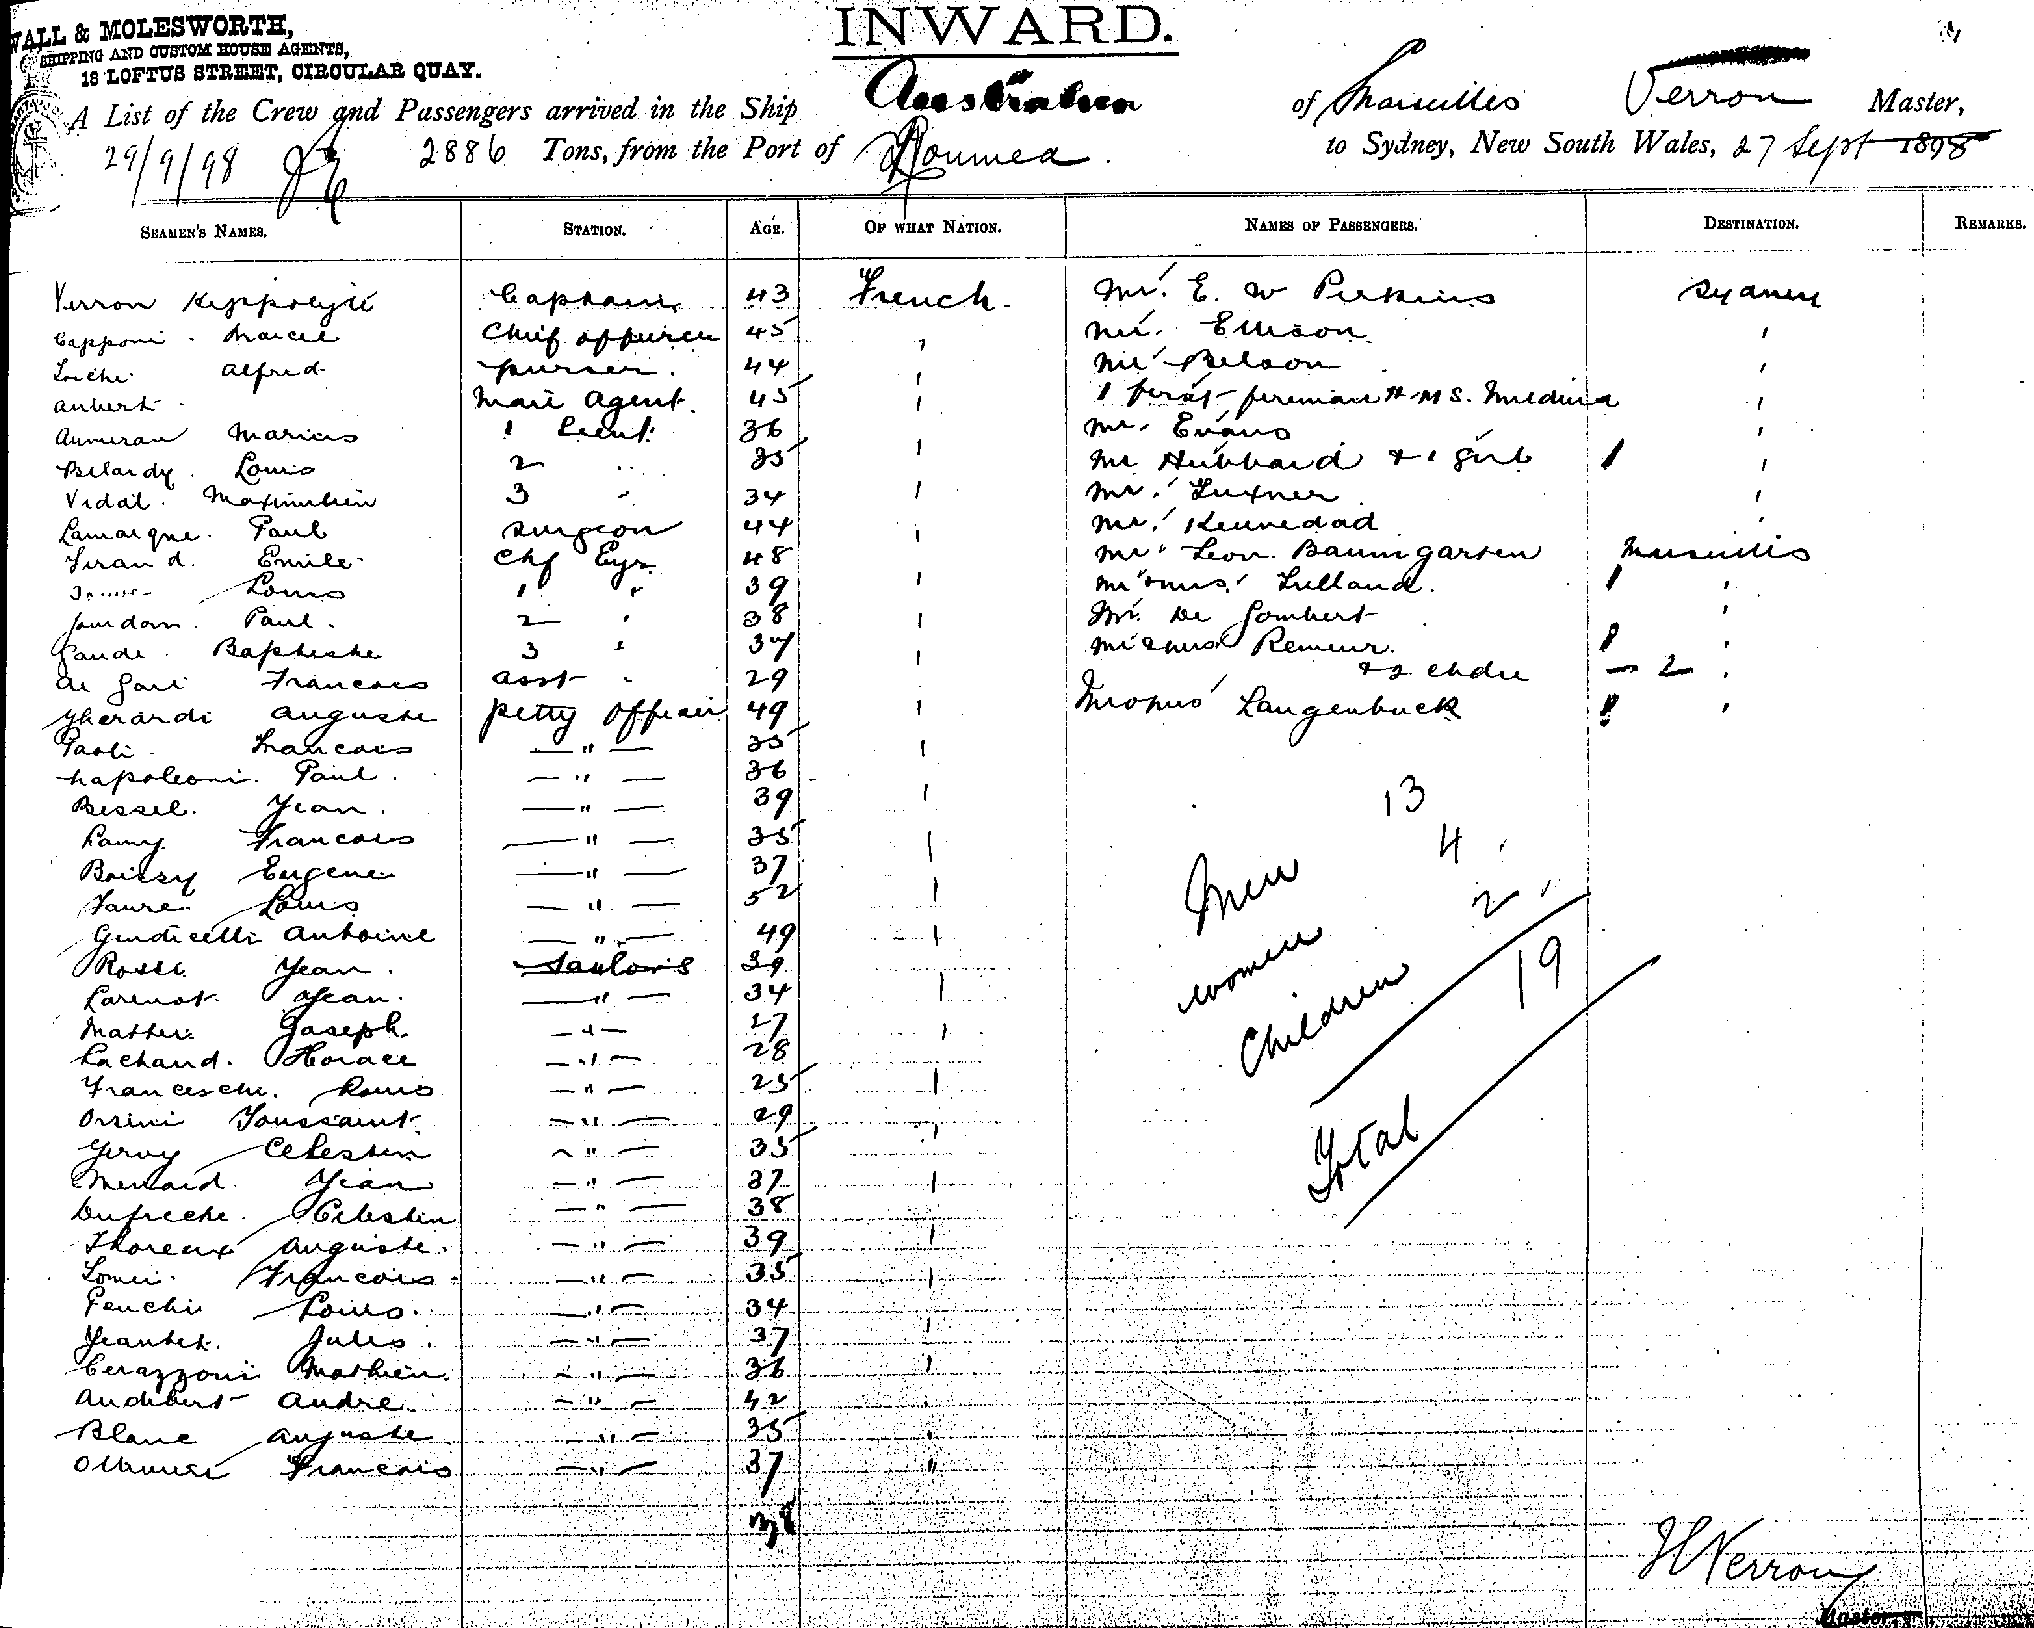 WALL & MOLESWORTH,
SHIPPING AND CUSTOM HOUSE AGENTS,
18 LOFTUS STREET, CIRCULAR QUAY.
INWARD.
A List of the Crew and Passengers arrived in the Ship Australien of Marseilles Verron Master,
29/9/98 2886 Tons, from the Port of Noumea to Sydney, New South Wales, 27 Sept 1898
SEAMEN'S NAMES. STATION. AGE. OF WHAT NATION. NAMES OF PASSENGERS. DESTINATION. REMARKS.
Verron Hyppolyte Captain 43 French. Mr. E. W Perkins Sydney
Capponi Marcel Chief officer 45 Mr. Ellison
Alfred purser. 44 Mr Belson
Aubert Mail Agent. 45 1 first fireman H.M.S. Medina
Aumeran Marius 1 Lieut. 36 Mr. Evans
Belardy. Louis 2 " 35 Mr Hubbard & 1 girl 1
Vidal. Maximilien 3 " 34 Mr. Luxner
Lamarque. Paul Surgeon 44 Mr. Kennedad
Emile Chf Egr. 48 Mr. Leon Baumgarten Marseilles
Louis 1 " 39 Mr & Mrs. Lulland. 1
Jourdan. Paul. 2 " 38 Mr. De Gombert
Gaudi Baptiste 3 " 37 Mr & Mrs Remeur. 1
de Gari Francois asst " 29 & 2 chdn — 2
Gherardi Auguste petty officer 49 Mr & Mrs Langenbuck
Paoli Francois — " — 35
Napoleoni. Paul. — " — 36
Bessel. Jean. — " — 39
Lamy Francois — " — 35
Boissy Eugene — " — 37
Faure Louis — " — 52
Giudicelli Antoine — " — 49
Rossi Jean. Sailors 39
Larenot Jean. — " — 34
Mathei Joseph. — " — 27
Lachaud. Horace — " — 28
Franceschi. Louis — " — 25
Orsini Toussaint. — " — 29
Gervy Celestin — " — 35
Menard. Jean — " — 37
Dufreche. Celestin — " — 38
Thoreux Auguste. — " — 39
Francois — " — 35
Penchi Louis. — " — 34
Jeantet. Jules. — " — 37
Cerazzoni Mathieu. — " — 36
Audibert Andre. — " — 42
Blanc Auguste — " — 35
Francois — " — 37
38
Men 13
Women 4
Children 2
Total 19
H Verron
Master.